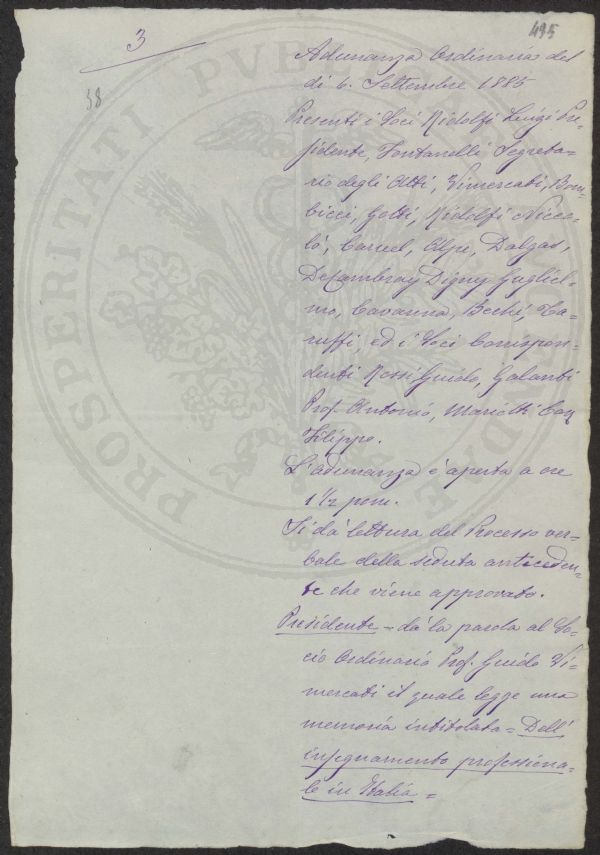 495
3
38
Adunanza Ordinaria del
dì 6. Settembre 1885
Presenti i Soci Ridolfi Luigi Pre-
sidente, Fontanelli Segreta-
rio degli Atti, Vimercati, Bom-
bicci, Gotti, Ridolfi Nicco-
lò, Caruel, Alpe, Dalgas,
De Cambray Digny Gugliel-
mo, Cavanna, Bechi, Ta-
ruffi, ed i Soci Corrispon-
denti Rossi Guido, Galanti
Prof. Antonio, Mariotti Cav.
Filippo.
L'adunanza è aperta a ore
1 1/2 pom.
Si dà lettura del Processo ver-
bale della seduta anteceden-
te che viene approvato.
Presidente - dà la parola al So-
cio Ordinario Prof. Guido Vi-
mercati il quale legge una
memoria intitolata = Dell'
insegnamento professiona-
le in Italia =
PROSPERITATI PVBLICAE AVGENDAE